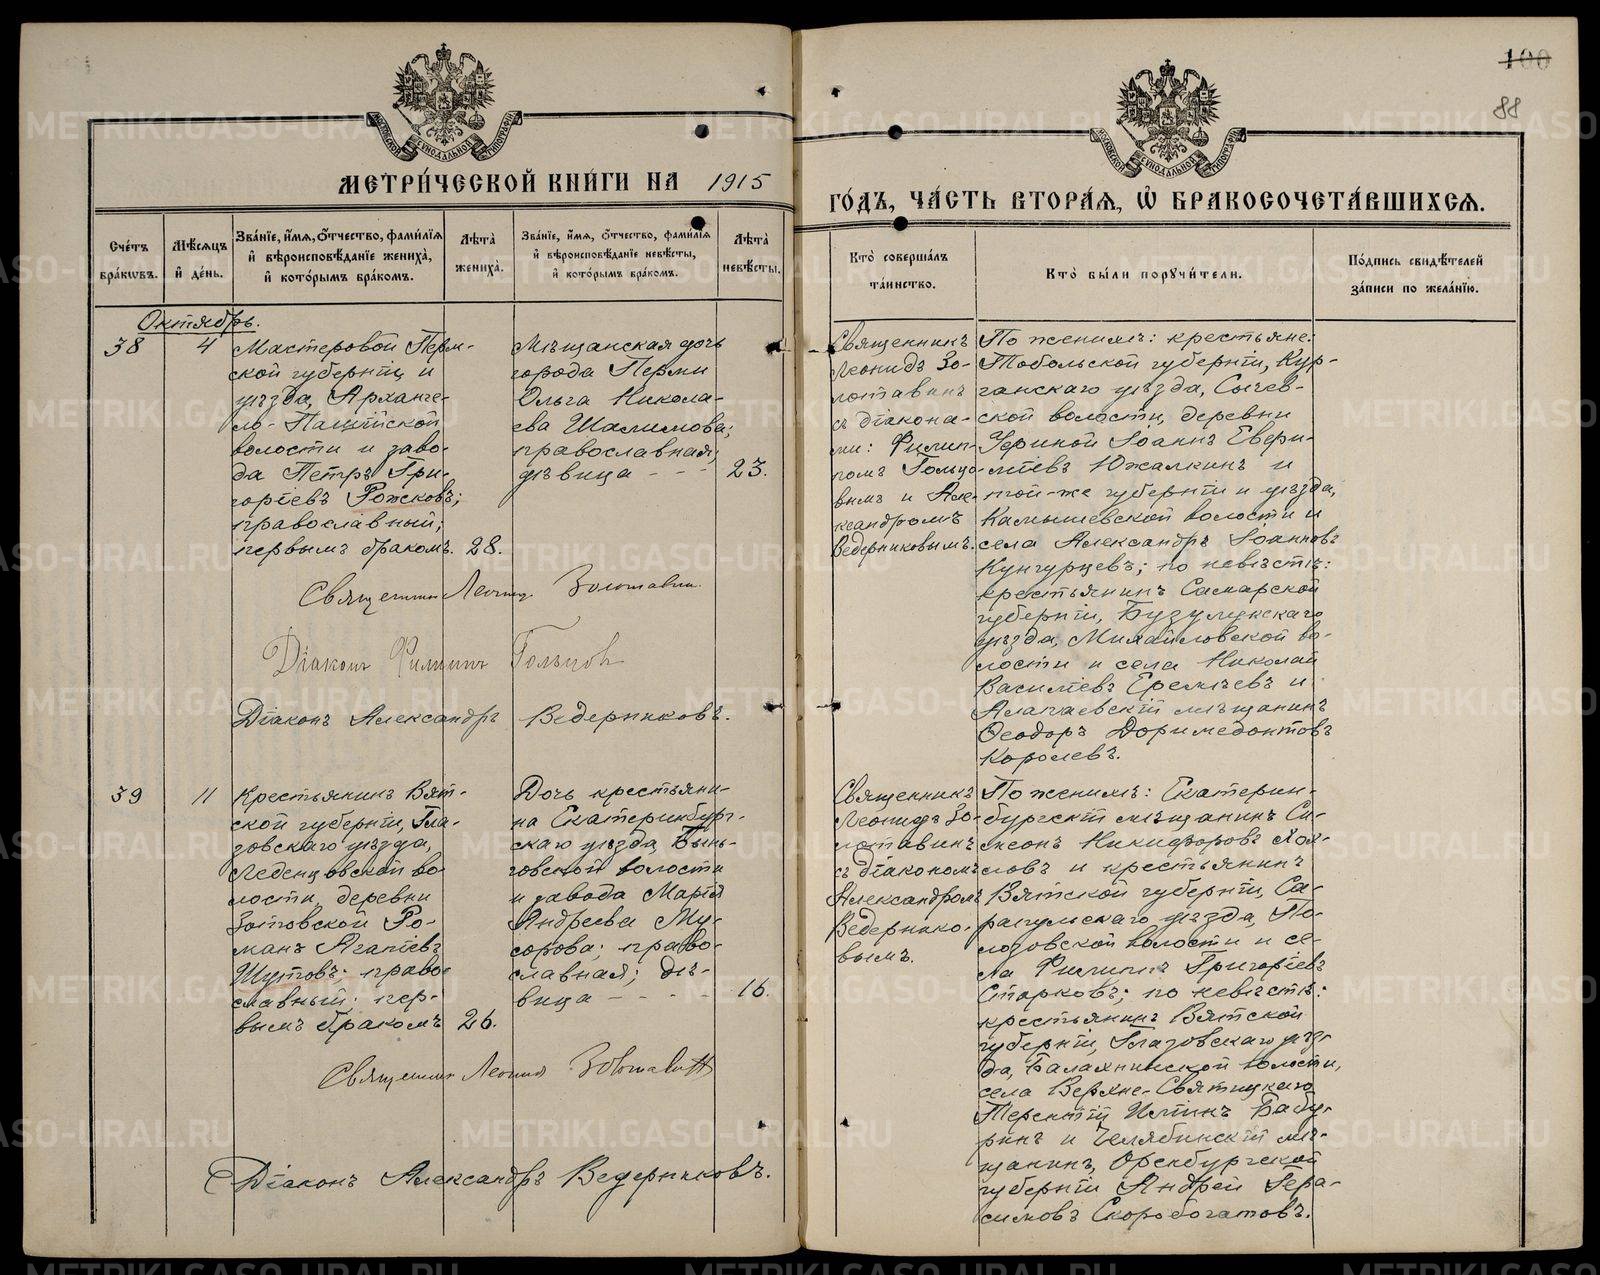 100
88
МЕТРИЧЕСКОЙ КНИГИ НА 1915
ГОДЪ, ЧАСТЬ ВТОРАЯ, Ѡ БРАКОСОЧЕТАВШИХСЯ.
Счетъ браковъ.
Мѣсяцъ и день.
Званіе, имя, отчество, фамилія и вѣроисповѣданіе жениха, и которымъ бракомъ.
Лѣта жениха.
Званіе, имя, отчество, фамилія и вѣроисповѣданіе невѣсты, и которымъ бракомъ.
Лѣта невѣсты.
Кто совершалъ таинство.
Кто были поручители.
Подпись свидѣтелей записи по желанію.
Октябрь.
38
4
Мастеровой Перм-
ской губерніи и
уѣзда, Арханге-
ло-Пашійской
волости и заво-
да Петръ Гри-
горіевъ Рожсковъ;
православный;
первымъ бракомъ.
28.
Мѣщанская дочь
города Перми
Ольга Никола-
ева Шалимова;
православная;
дѣвица - - -
23.
Священникъ
Леонидъ Зо-
лотавинъ
съ діакона-
ми: Филип-
помъ Гольцо-
вымъ и Але-
ксандромъ
Ведерниковымъ.
По женихѣ: крестьяне:
Тобольской губерніи, Кур-
ганскаго уѣзда, Сычев-
ской волости, деревни
Іоаннъ
Южалкинъ и
той-же губерніи и уѣзда,
Камышевской волости и
села Александръ Іоанновъ
Кунгурцевъ; по невѣстѣ:
крестьянинъ Самарской
губерніи, Бузулукскаго
уѣзда, Михайловской во-
лости и села Николай
Василіевъ Еремѣевъ и
Алапаевскій мѣщанинъ
Ѳеодоръ Доримедонтовъ
Королевъ.
Священникъ Леонидъ Золотавин
Діаконъ Филиппъ Гольцов
Діаконъ Александръ Ведерниковъ.
39
11
Крестьянинъ Вят-
ской губерніи, Гла-
зовскаго уѣзда,
Леденцовской во-
лости, деревни
Зотовской Ро-
манъ Агапіевъ
Шутовъ; право-
славный; пер-
вымъ бракомъ
26.
Дочь крестьяни-
на Екатеринбург-
скаго уѣзда, Бынь-
говской волости
и завода Марія
Андреева Му-
сорова; право-
славная; дѣ-
вица - - - -
16.
Священникъ
Леонидъ Зо-
лотавинъ
съ діакономъ
Александромъ
Ведернико-
вымъ.
По женихѣ: Екатерин-
бургскій мѣщанинъ Си-
меонъ Никифоровъ Хох-
ловъ и крестьянинъ
Вятской губерніи, Са-
рапульскаго уѣзда, По-
лозовской волости и се-
ла Филиппъ Григоріевъ
Старковъ; по невѣстѣ:
крестьянинъ Вятской
губерніи, Глазовскаго уѣз-
да, Балахнинской волости,
села Верхне-Святицкаго
Терентій Ильинъ Бабу-
ринъ и Челябинскій мѣ-
щанинъ, Оренбургской
губерніи Андрей Гера-
симовъ Скоробогатовъ.
Священникъ Леонид Золотавин
Діаконъ Александръ Ведерниковъ.
METRIKI.GASO-URAL.RU